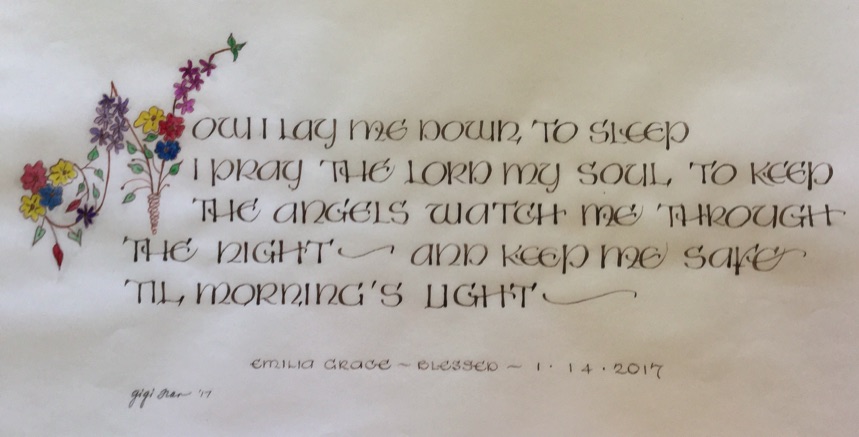 NOW I LAY ME DOWN, TO SLEEP
I PRAY THE LORD MY SOUL, TO KEEP
THE ANGELS WATCH ME THROUGH
THE NIGHT~ AND KEEP ME SAFE
'TIL MORNING'S LIGHT~
EMILIA GRACE ~ BLESSED ~ 1 · 14 · 2017
gigi '17